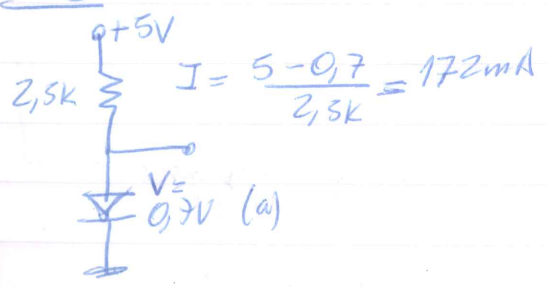 +5V
2,5k
I = 5-0,7 / 2,5k = 172mA
V=
0,7V (a)